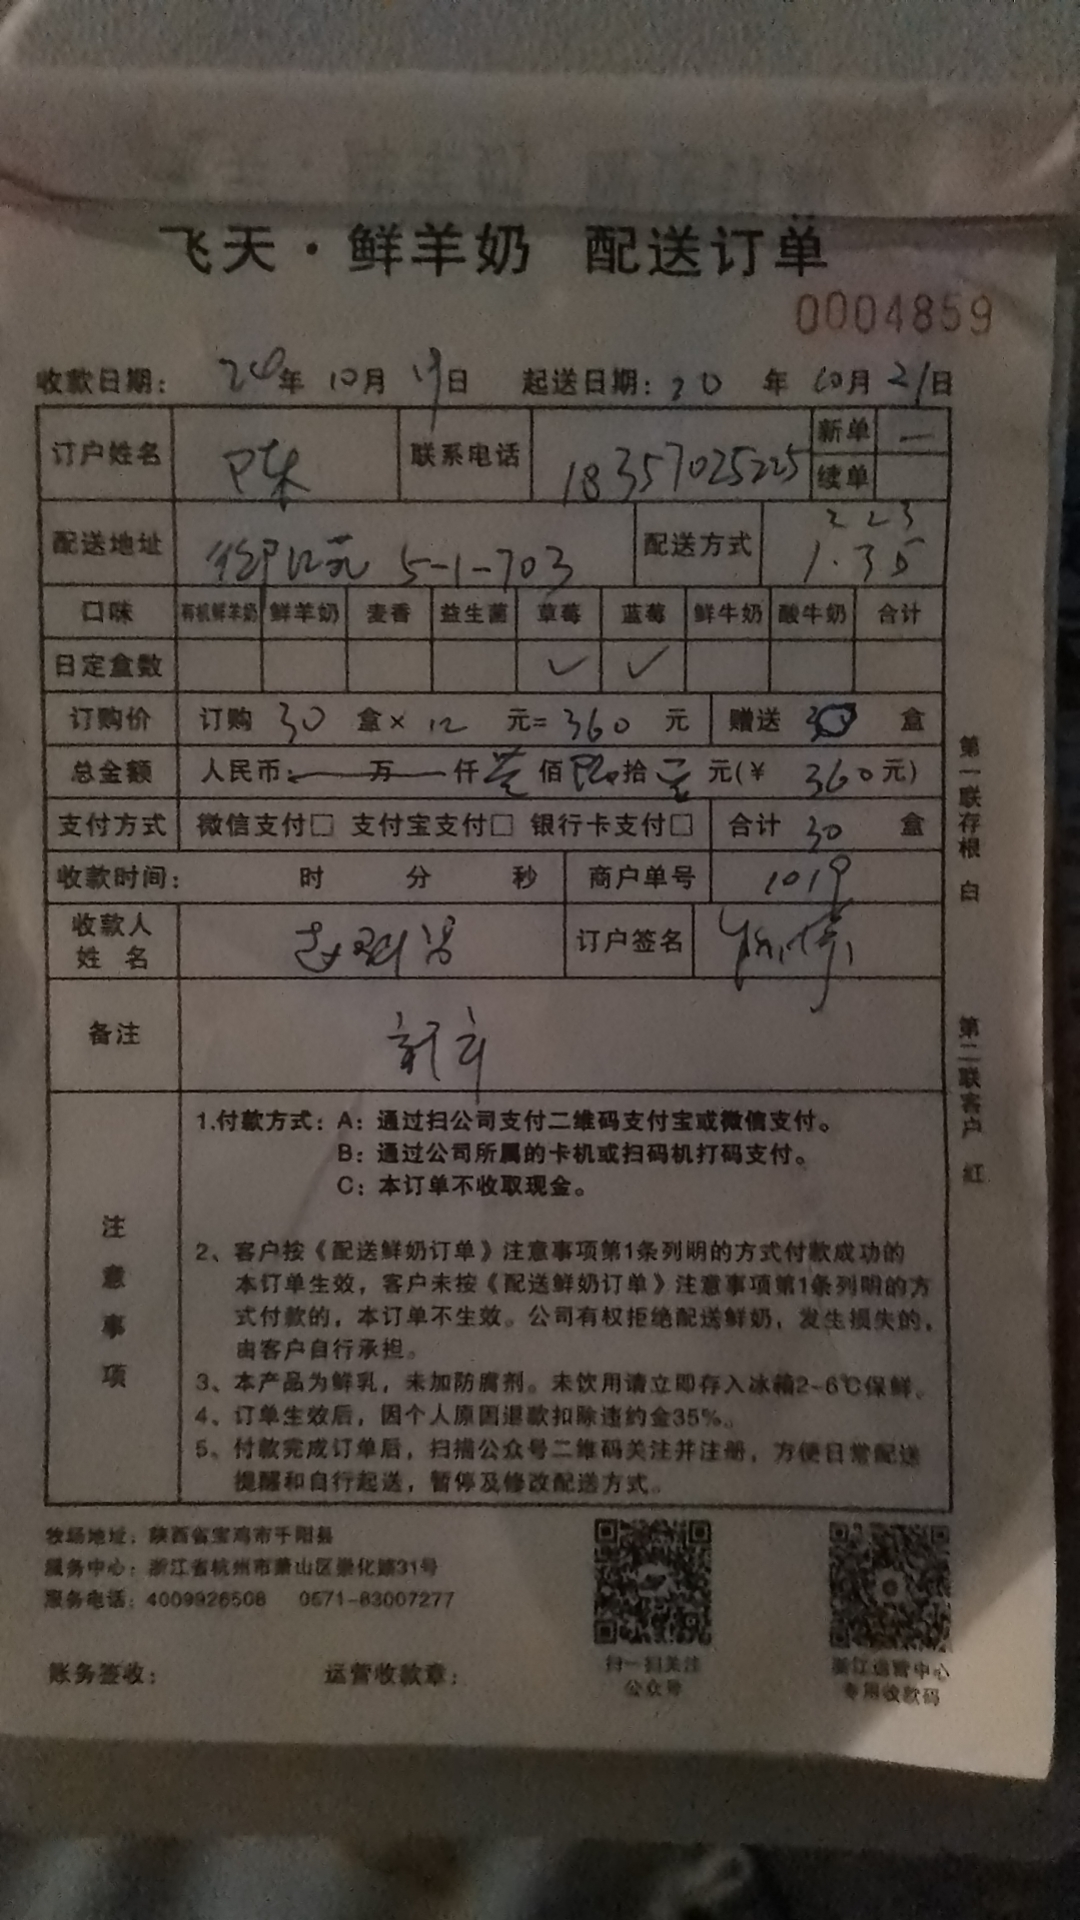 飞天·鲜羊奶 配送订单
0004859
收款日期： 20年 10月 19日 起送日期：20 年 10月 21日
订户姓名 陈 联系电话 18357025225 新单 一
续单
配送地址 5-1-703 配送方式 2 2 3
1.35
口味 有机鲜羊奶 鲜羊奶 麦香 益生菌 草莓 蓝莓 鲜牛奶 酸牛奶 合计
日定盒数 ✓ ✓
订购价 订购 30 盒× 12 元= 360 元 赠送 盒
总金额 人民币： 万 仟 佰 拾 元(¥ 360元)
支付方式 微信支付□ 支付宝支付□ 银行卡支付□ 合计 30 盒
收款时间： 时 分 秒 商户单号 1019
收款人
姓 名
订户签名
备注
注意事项
1.付款方式：A：通过扫公司支付二维码支付宝或微信支付。
B：通过公司所属的卡机或扫码机打码支付。
C：本订单不收取现金。
2、客户按《配送鲜奶订单》注意事项第1条列明的方式付款成功的
本订单生效，客户未按《配送鲜奶订单》注意事项第1条列明的方
式付款的，本订单不生效。公司有权拒绝配送鲜奶，发生损失的，
由客户自行承担。
3、本产品为鲜乳，未加防腐剂。未饮用请立即存入冰箱2~6℃保鲜。
4、订单生效后，因个人原因退款扣除违约金35%。
5、付款完成订单后，扫描公众号二维码关注并注册，方便日常配送
提醒和自行起送，暂停及修改配送方式。
第一联存根 白
第二联客户 红
牧场地址：陕西省宝鸡市千阳县
服务中心：浙江省杭州市萧山区崇化路31号
服务电话：4009926508 0571-83007277
扫一扫关注
公众号
浙江运营中心
专用收款码
账务签收： 运营收款章：